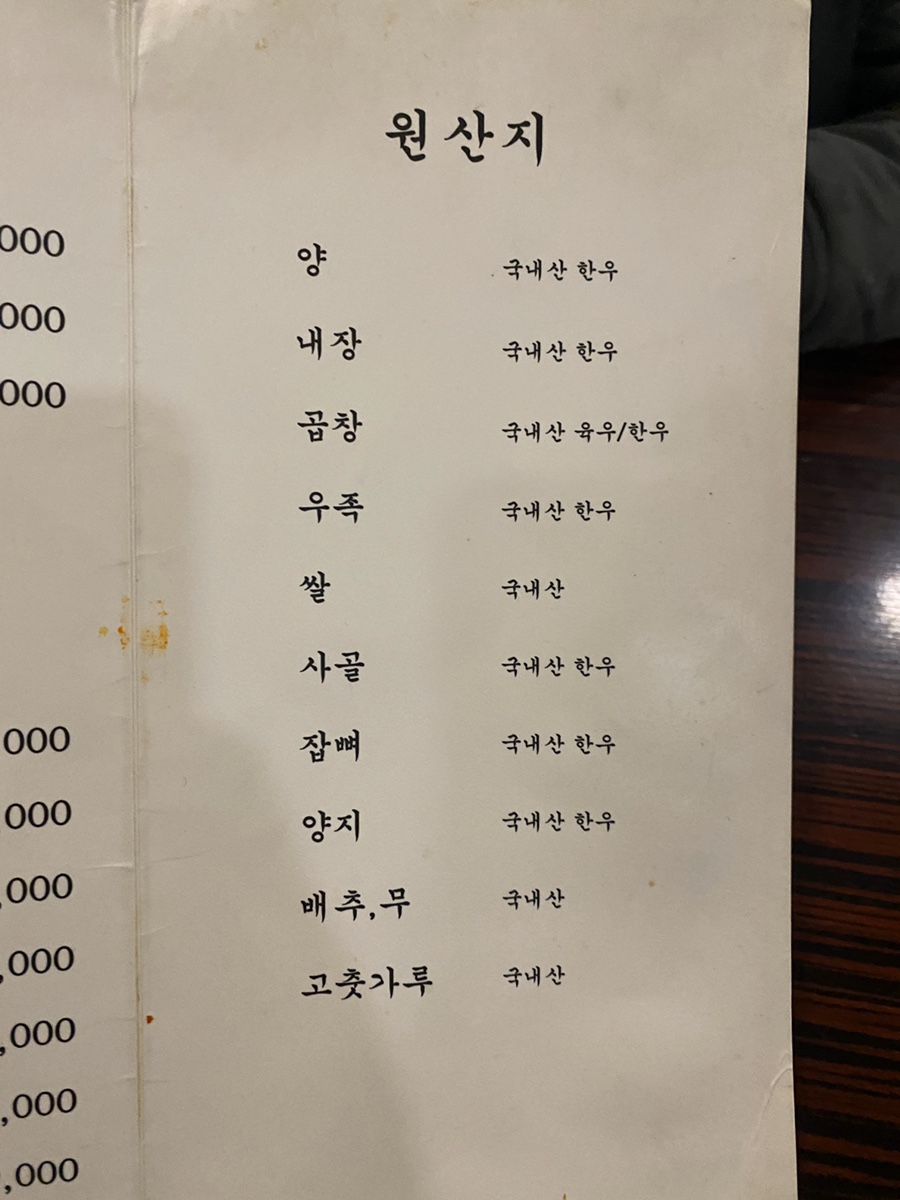 원산지
양 국내산 한우
내장 국내산 한우
곱창 국내산 육우/한우
우족 국내산 한우
쌀 국내산
사골 국내산 한우
잡뼈 국내산 한우
양지 국내산 한우
배추,무 국내산
고춧가루 국내산
000
000
,000
,000
,000
,000
,000
,000
,000
,000